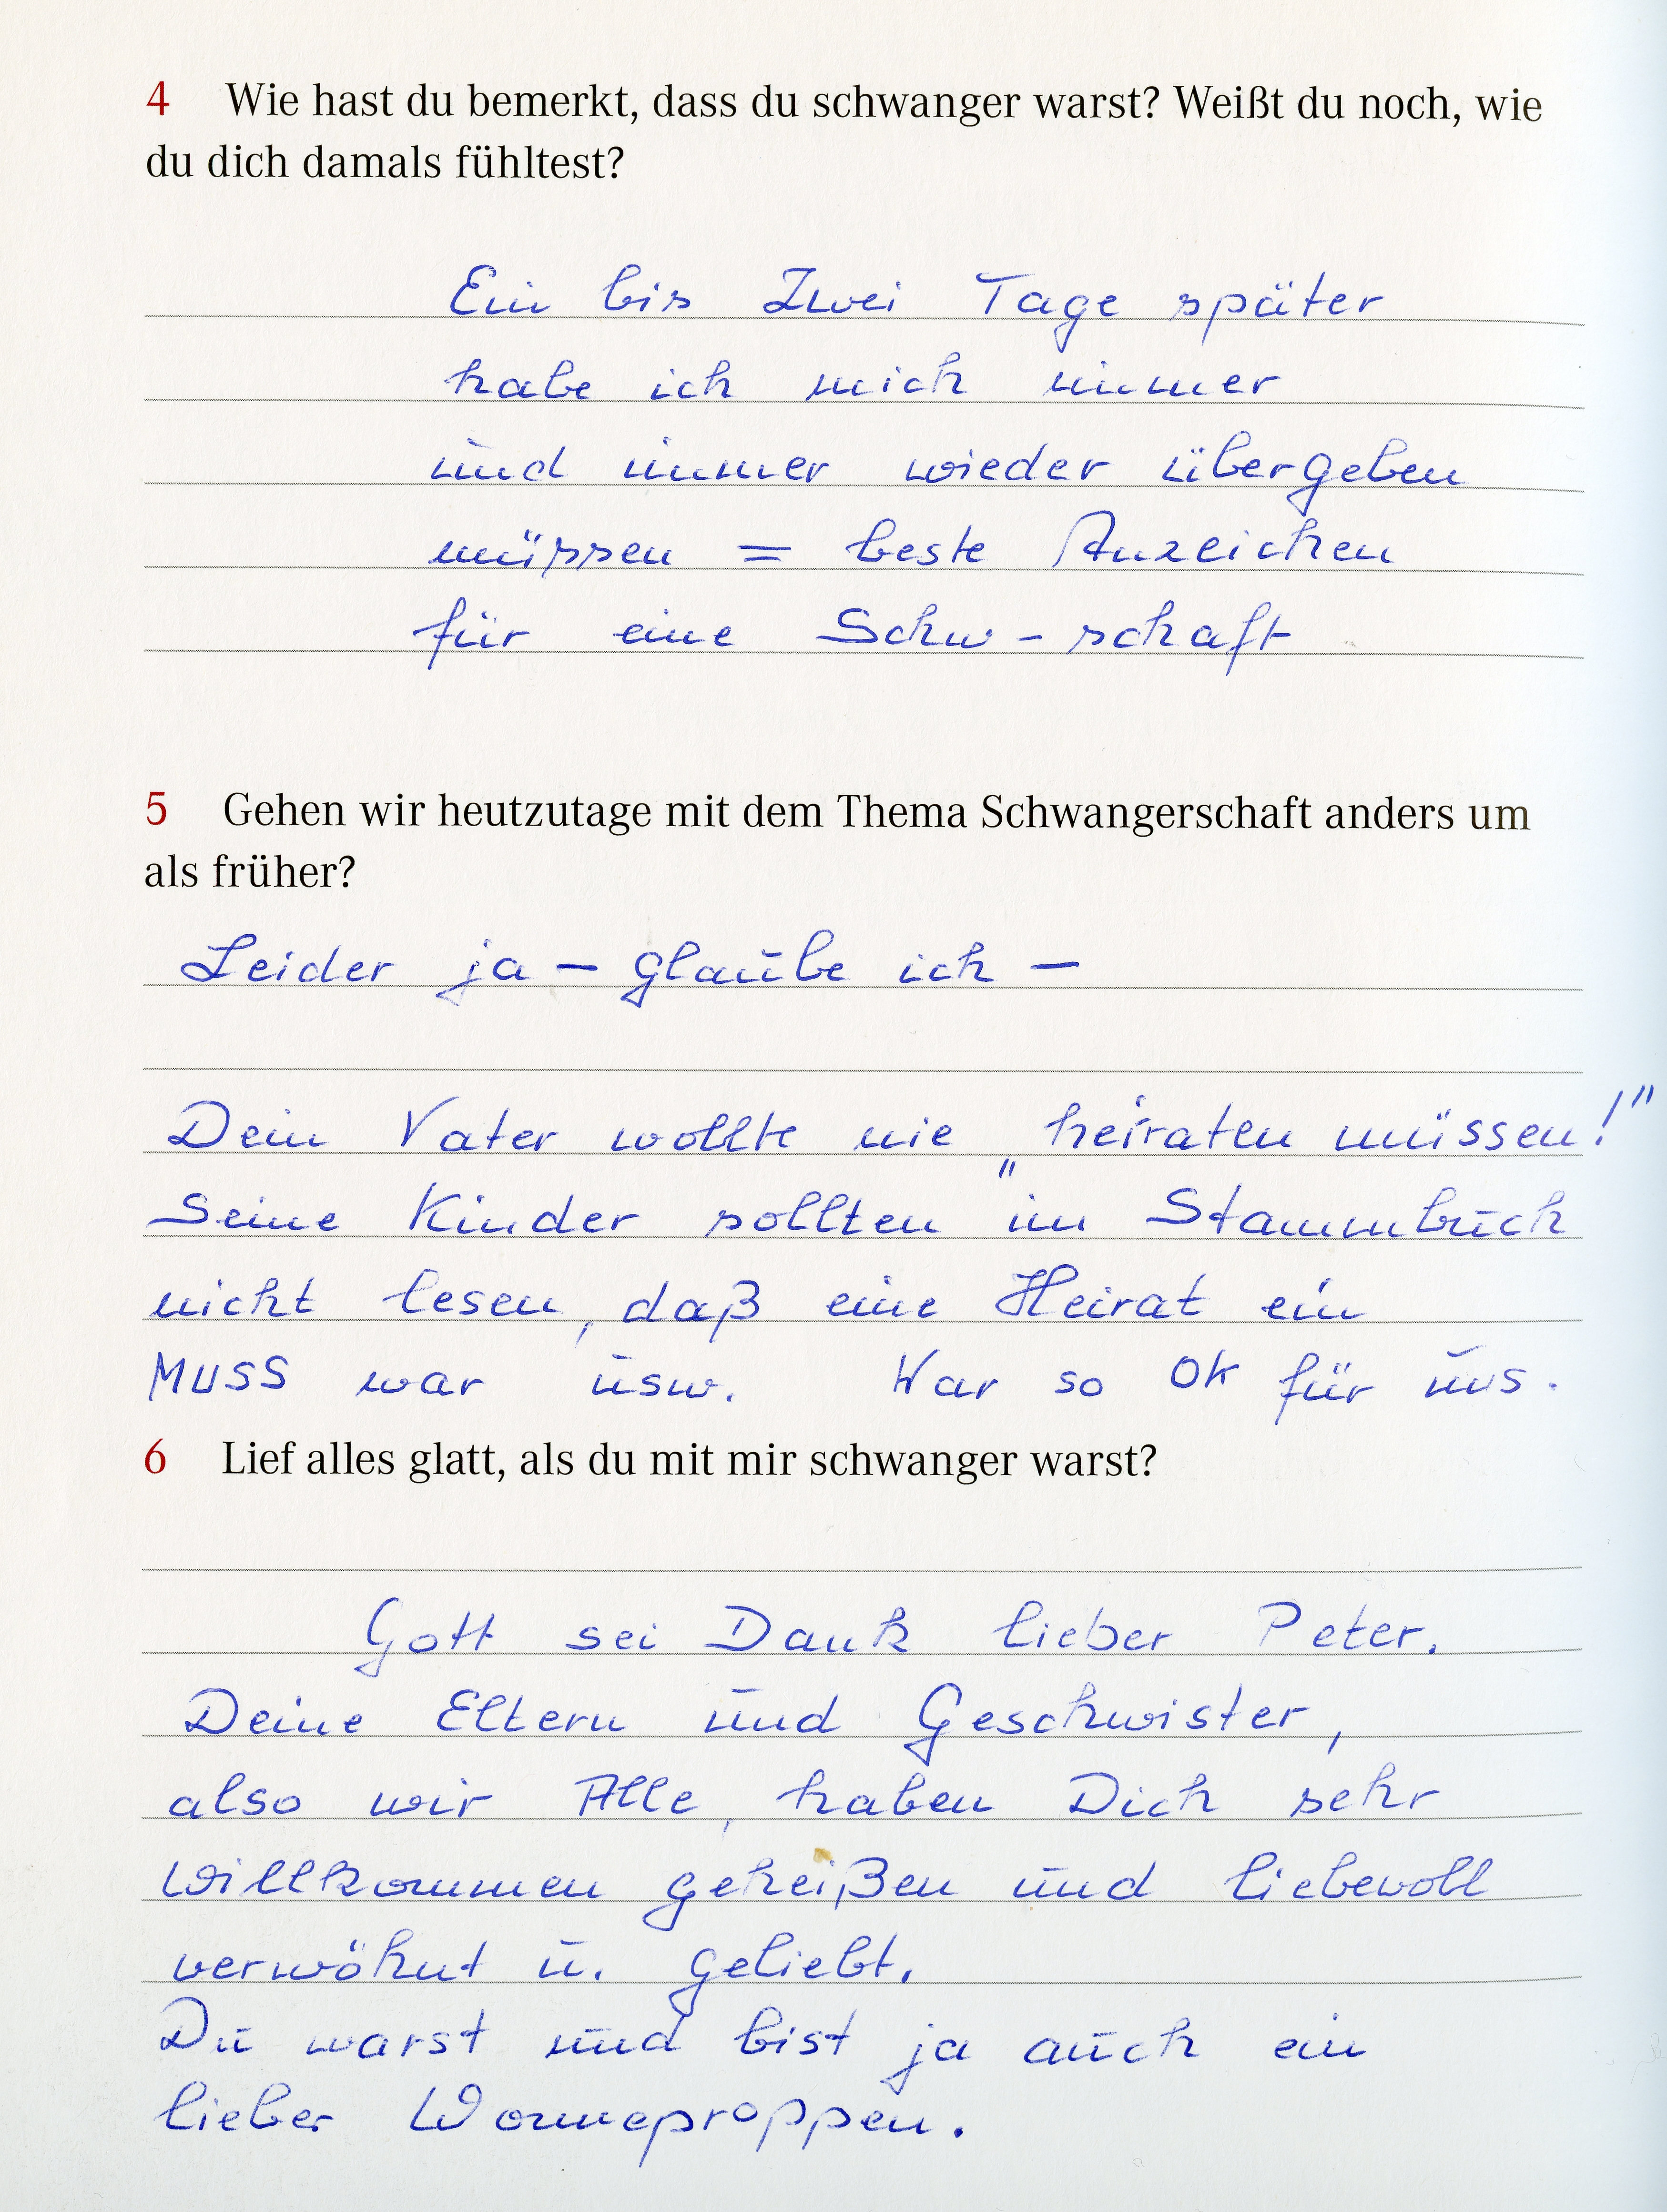 4 Wie hast du bemerkt, dass du schwanger warst? Weißt du noch, wie
du dich damals fühltest?
Ein bis Zwei Tage später
habe ich mich immer
und immer wieder übergeben
müssen = beste Anzeichen
für eine Schw-schaft
5 Gehen wir heutzutage mit dem Thema Schwangerschaft anders um
als früher?
Leider ja – glaube ich –
Dein Vater wollte nie „heiraten müssen!"
Seine Kinder sollten im Stammbuch
nicht lesen, daß eine Heirat ein
MUSS war usw. War so OK für uns.
6 Lief alles glatt, als du mit mir schwanger warst?
Gott sei Dank lieber Peter.
Deine Eltern und Geschwister,
also wir Alle, haben Dich sehr
Willkommen geheißen und liebevoll
verwöhnt u. geliebt.
Du warst und bist ja auch ein
lieber Wonneproppen.